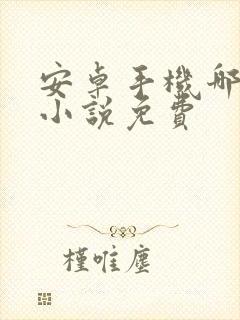 安卓手機那
小說免費
槿唯塵